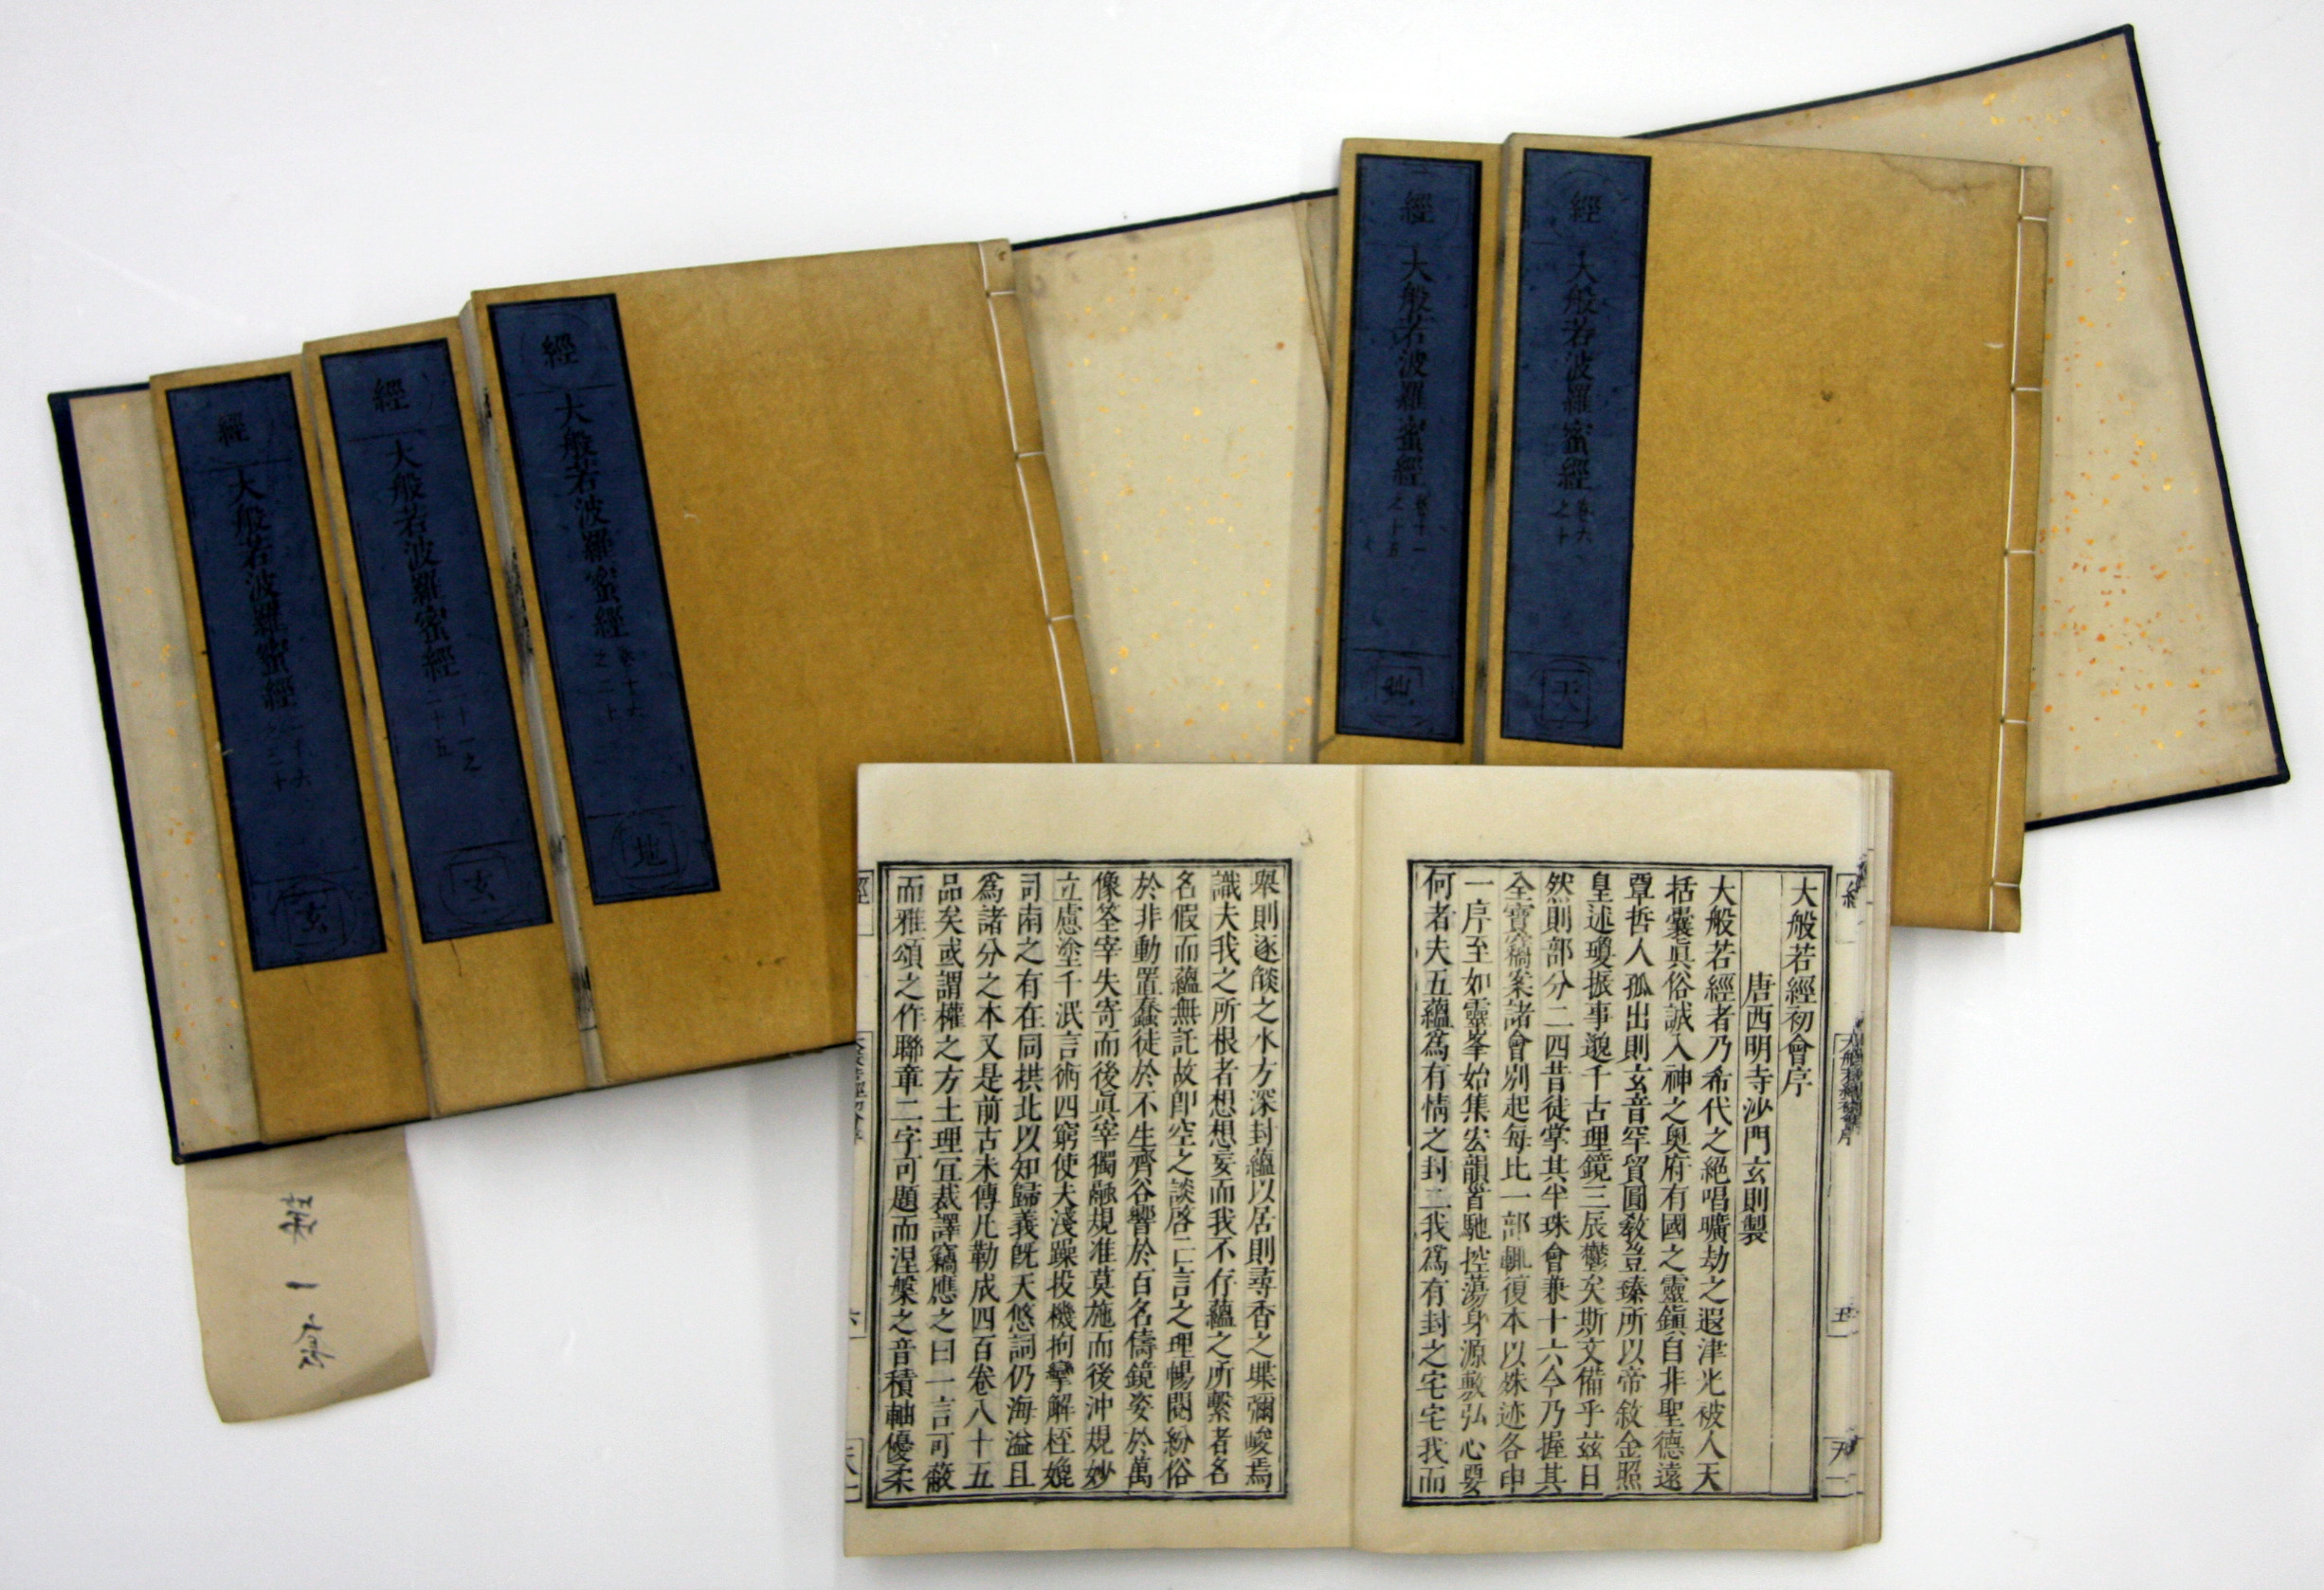 經
大般若波羅蜜經
卷六
之十
天
經
大般若波羅蜜經
卷十一
之十五
地
經
大般若波羅蜜經
卷十六
之二十
地
經
大般若波羅蜜經
二十一之
二十五
玄
經
大般若波羅蜜經
二十六
之三十
玄
大般若經初會序
唐西明寺沙門玄則製
大般若經者乃希代之絕唱曠劫之遐津光被人天
括囊眞俗誠入神之奧府有國之靈鎭自非聖德遠
覃哲人孤出則玄音罕貿圓敎豈臻所以帝敘金照
皇述瓊振事邈千古理鏡三辰鬱矣斯文備乎茲日
然則部分二四昔徒掌其半珠會兼十六今乃握其
全寶竊案諸會別起每比一部輒復本以殊迹各申
一序至如靈峯始集宏韻首馳控蕩身源敷弘心要
何者夫五蘊爲有情之封二我爲有封之宅宅我而
舉則逐燄之水方深封蘊以居則尋香之堞彌峻焉
識夫我之所根者想想妄而我不存蘊之所繫者名
名假而蘊無託故卽空之談啓亡言之理暢閱紛俗
於非動置蠢徒於不生齊谷響於百名儔鏡姿於萬
像筌宰失寄而後眞宰獨融規准莫施而後沖規妙
立慮塗千泯言術四窮使夫淺躁投機拘攣解桎媲
司南之有在同拱北以知歸義旣天悠詞仍海溢且
爲諸分之本又是前古未傳凡勒成四百卷八十五
品矣或謂權之方土理宜裁譯竊應之曰一言可蔽
而雅頌之作聯章二字可題而涅槃之音積軸優柔
第一套